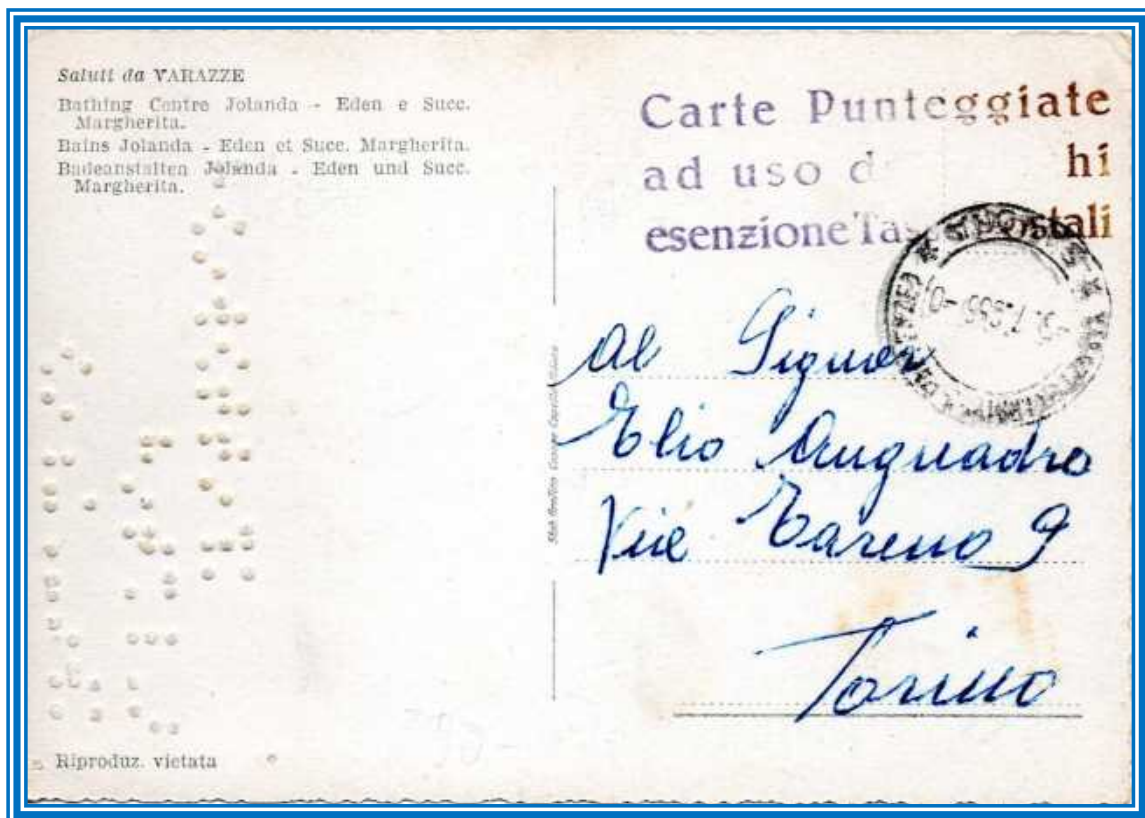 Saluti da VARAZZE
Bathing Centre Jolanda - Eden e Succ.
Margherita.
Bains Jolanda - Eden et Succ. Margherita.
Badeanstalten Jolanda - Eden und Succ.
Margherita.
Carte Punteggiate
ad uso d hi
esenzione Tas Postali
Al Signor
Elio Anguadro
Torino
Riproduz. vietata